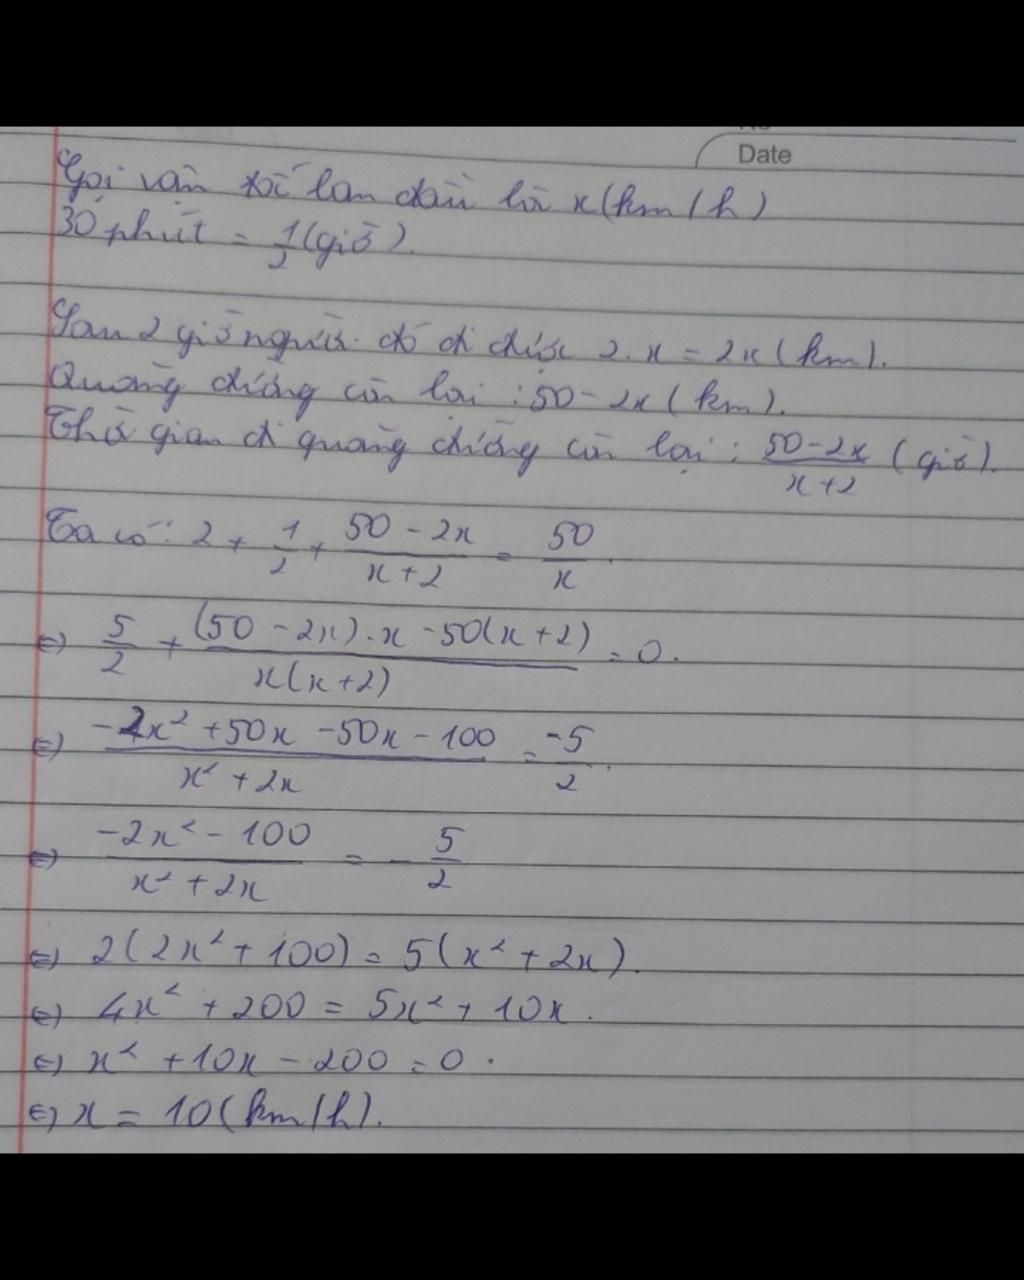 Date
Gọi vận tốc ban đầu là x(km/h)
30 phút = 1/2 (giờ).
Sau 2 giờ người đó đi được 2.x = 2x (km).
Quãng đường còn lại : 50 - 2x (km).
Thời gian đi quãng đường còn lại : (50-2x)/(x+2) (giờ).
Ta có : 2 + 1/2 + (50 - 2x)/(x+2) = 50/x
⇔ 5/2 + ((50 - 2x).x - 50(x+2))/(x(x+2)) = 0.
⇔ (-2x² + 50x - 50x - 100)/(x² + 2x) = -5/2.
⇔ (-2x² - 100)/(x² + 2x) = - 5/2
⇔ 2(2x² + 100) = 5(x² + 2x).
⇔ 4x² + 200 = 5x² + 10x.
⇔ x² + 10x - 200 = 0.
⇔ x = 10 (km/h).